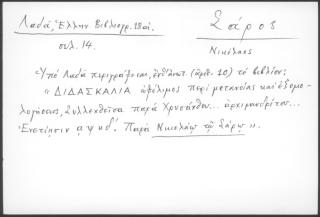 Λαδᾶ, Ἑλλην. Βιβλιογρ. 18αι.
Σάρος
σελ. 14.
Νικόλαος
Ὑπό Λαδᾶ περιγράφεται, (ἀριθ. 10) τό βιβλίον:
"ΔΙΔΑΣΚΑΛΙΑ ὠφέλιμος περί μετανοίας καί ἐξομο-
λογήσεως, Συλλεχθεῖσα παρά Χρυσάνθου... ἀρχιμανδρίτου...
Ἐνετίησιν αψκδ'. Παρά Νικολάῳ τῷ Σάρῳ".